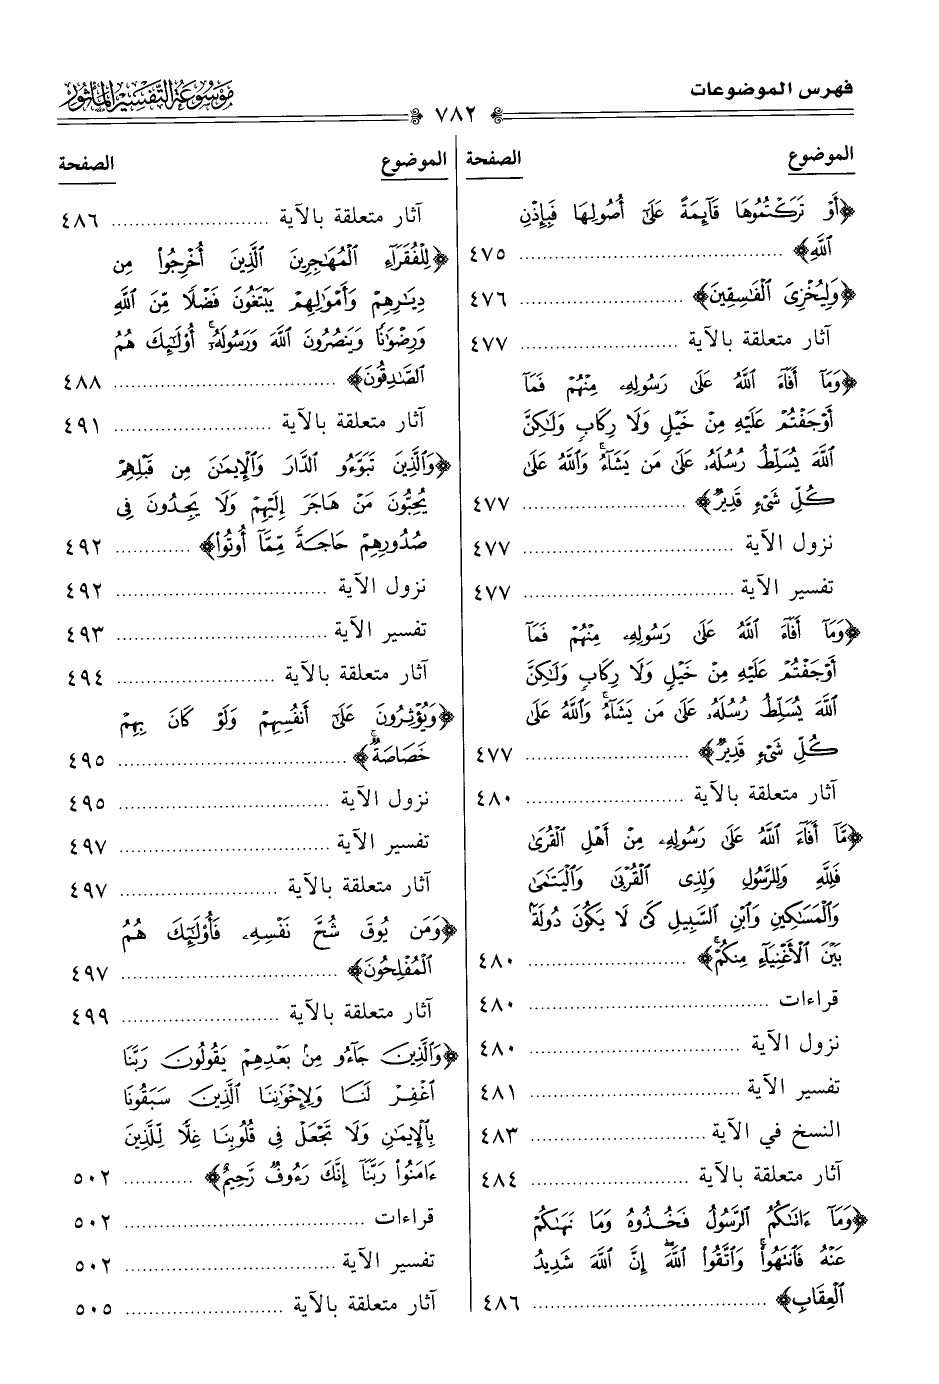 فهرس الموضوعات
٧٨٢
موسوعة التفسير المأثور
الموضوع الصفحة
﴿أَوْ تَرَكْتُمُوهَا قَآئِمَةً عَلَىٰٓ أُصُولِهَا فَبِإِذْنِ
ٱللَّهِ﴾ ........ ٤٧٥
﴿وَلِيُخْزِىَ ٱلْفَٰسِقِينَ﴾ ........ ٤٧٦
آثار متعلقة بالآية ........ ٤٧٧
﴿وَمَآ أَفَآءَ ٱللَّهُ عَلَىٰ رَسُولِهِۦ مِنْهُمْ فَمَآ
أَوْجَفْتُمْ عَلَيْهِ مِنْ خَيْلٍ وَلَا رِكَابٍ وَلَٰكِنَّ
ٱللَّهَ يُسَلِّطُ رُسُلَهُۥ عَلَىٰ مَن يَشَآءُ ۚ وَٱللَّهُ عَلَىٰ
كُلِّ شَىْءٍ قَدِيرٌ﴾ ........ ٤٧٧
نزول الآية ........ ٤٧٧
تفسير الآية ........ ٤٧٧
﴿وَمَآ أَفَآءَ ٱللَّهُ عَلَىٰ رَسُولِهِۦ مِنْهُمْ فَمَآ
أَوْجَفْتُمْ عَلَيْهِ مِنْ خَيْلٍ وَلَا رِكَابٍ وَلَٰكِنَّ
ٱللَّهَ يُسَلِّطُ رُسُلَهُۥ عَلَىٰ مَن يَشَآءُ ۚ وَٱللَّهُ عَلَىٰ
كُلِّ شَىْءٍ قَدِيرٌ﴾ ........ ٤٧٧
آثار متعلقة بالآية ........ ٤٨٠
﴿مَّآ أَفَآءَ ٱللَّهُ عَلَىٰ رَسُولِهِۦ مِنْ أَهْلِ ٱلْقُرَىٰ
فَلِلَّهِ وَلِلرَّسُولِ وَلِذِى ٱلْقُرْبَىٰ وَٱلْيَتَٰمَىٰ
وَٱلْمَسَٰكِينِ وَٱبْنِ ٱلسَّبِيلِ كَىْ لَا يَكُونَ دُولَةًۢ
بَيْنَ ٱلْأَغْنِيَآءِ مِنكُمْ ۚ﴾ ........ ٤٨٠
قراءات ........ ٤٨٠
نزول الآية ........ ٤٨٠
تفسير الآية ........ ٤٨١
النسخ في الآية ........ ٤٨٣
آثار متعلقة بالآية ........ ٤٨٤
﴿وَمَآ ءَاتَىٰكُمُ ٱلرَّسُولُ فَخُذُوهُ وَمَا نَهَىٰكُمْ
عَنْهُ فَٱنتَهُوا۟ ۚ وَٱتَّقُوا۟ ٱللَّهَ ۖ إِنَّ ٱللَّهَ شَدِيدُ
ٱلْعِقَابِ﴾ ........ ٤٨٦
الموضوع الصفحة
آثار متعلقة بالآية ........ ٤٨٦
﴿لِلْفُقَرَآءِ ٱلْمُهَٰجِرِينَ ٱلَّذِينَ أُخْرِجُوا۟ مِن
دِيَٰرِهِمْ وَأَمْوَٰلِهِمْ يَبْتَغُونَ فَضْلًا مِّنَ ٱللَّهِ
وَرِضْوَٰنًا وَيَنصُرُونَ ٱللَّهَ وَرَسُولَهُۥٓ ۚ أُو۟لَٰٓئِكَ هُمُ
ٱلصَّٰدِقُونَ﴾ ........ ٤٨٨
آثار متعلقة بالآية ........ ٤٩١
﴿وَٱلَّذِينَ تَبَوَّءُو ٱلدَّارَ وَٱلْإِيمَٰنَ مِن قَبْلِهِمْ
يُحِبُّونَ مَنْ هَاجَرَ إِلَيْهِمْ وَلَا يَجِدُونَ فِى
صُدُورِهِمْ حَاجَةً مِّمَّآ أُوتُوا۟﴾ ........ ٤٩٢
نزول الآية ........ ٤٩٢
تفسير الآية ........ ٤٩٣
آثار متعلقة بالآية ........ ٤٩٤
﴿وَيُؤْثِرُونَ عَلَىٰٓ أَنفُسِهِمْ وَلَوْ كَانَ بِهِمْ
خَصَاصَةٌ ۚ﴾ ........ ٤٩٥
نزول الآية ........ ٤٩٥
تفسير الآية ........ ٤٩٧
آثار متعلقة بالآية ........ ٤٩٧
﴿وَمَن يُوقَ شُحَّ نَفْسِهِۦ فَأُو۟لَٰٓئِكَ هُمُ
ٱلْمُفْلِحُونَ﴾ ........ ٤٩٧
آثار متعلقة بالآية ........ ٤٩٩
﴿وَٱلَّذِينَ جَآءُو مِنۢ بَعْدِهِمْ يَقُولُونَ رَبَّنَا
ٱغْفِرْ لَنَا وَلِإِخْوَٰنِنَا ٱلَّذِينَ سَبَقُونَا
بِٱلْإِيمَٰنِ وَلَا تَجْعَلْ فِى قُلُوبِنَا غِلًّا لِّلَّذِينَ
ءَامَنُوا۟ رَبَّنَآ إِنَّكَ رَءُوفٌ رَّحِيمٌ﴾ ........ ٥٠٢
قراءات ........ ٥٠٢
تفسير الآية ........ ٥٠٢
آثار متعلقة بالآية ........ ٥٠٥